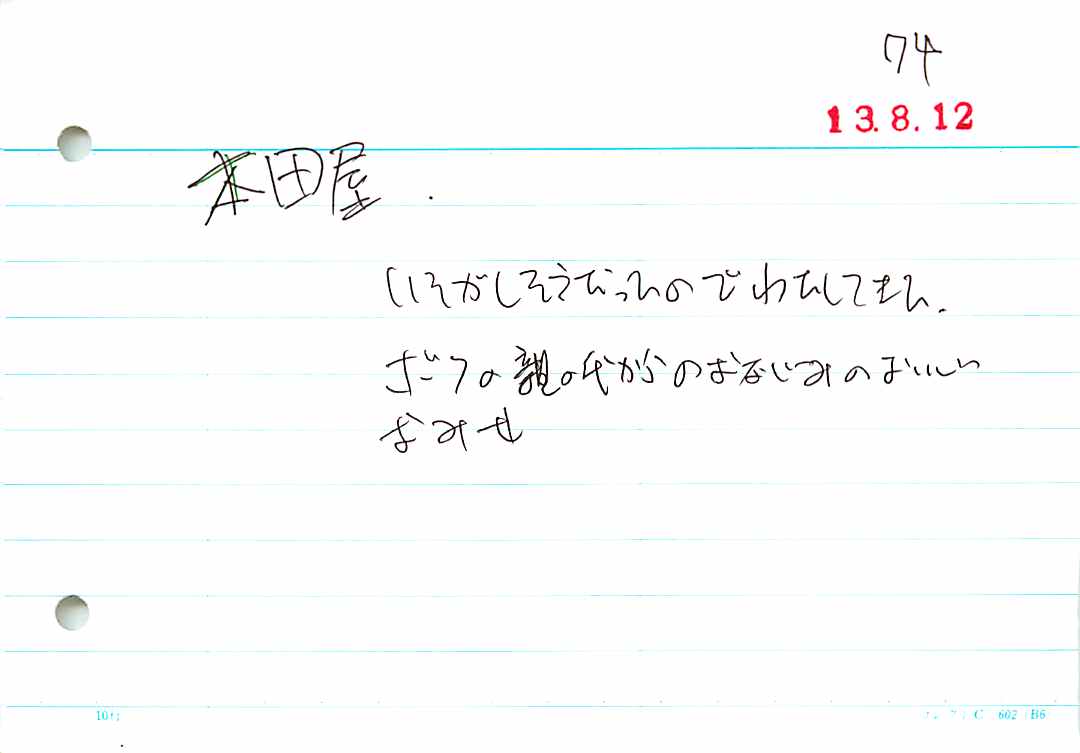 74
13.8.12
本田屋.
いそがしそうだったのでわたしてきた.
ボクの親の代からのおなじみのおいしい
おみせ
10行
C 602 B6